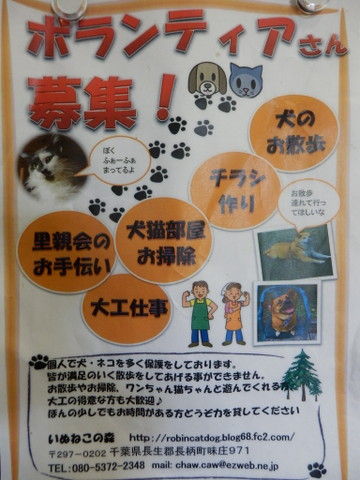 ボランティアさん
募集！
ぼく
ふぁーふぁ
まってるよ
犬の
お散歩
チラシ
作り
お散歩
連れて行っ
てほしいな
里親会の
お手伝い
犬猫部屋
お掃除
大工仕事
個人で犬・ネコを多く保護をしております。
皆が満足のいく散歩をしてあげる事ができません。
お散歩やお掃除、ワンちゃん猫ちゃんと遊んでくれる方、
大工の得意な方も大歓迎♪
ほんの少しでもお時間がある方どうぞ力を貸してください
いぬねこの森 http://robincatdog.blog68.fc2.com/
〒297-0202 千葉県長生郡長柄町味庄971
TEL:080-5372-2348 mail: chaw.caw@ezweb.ne.jp